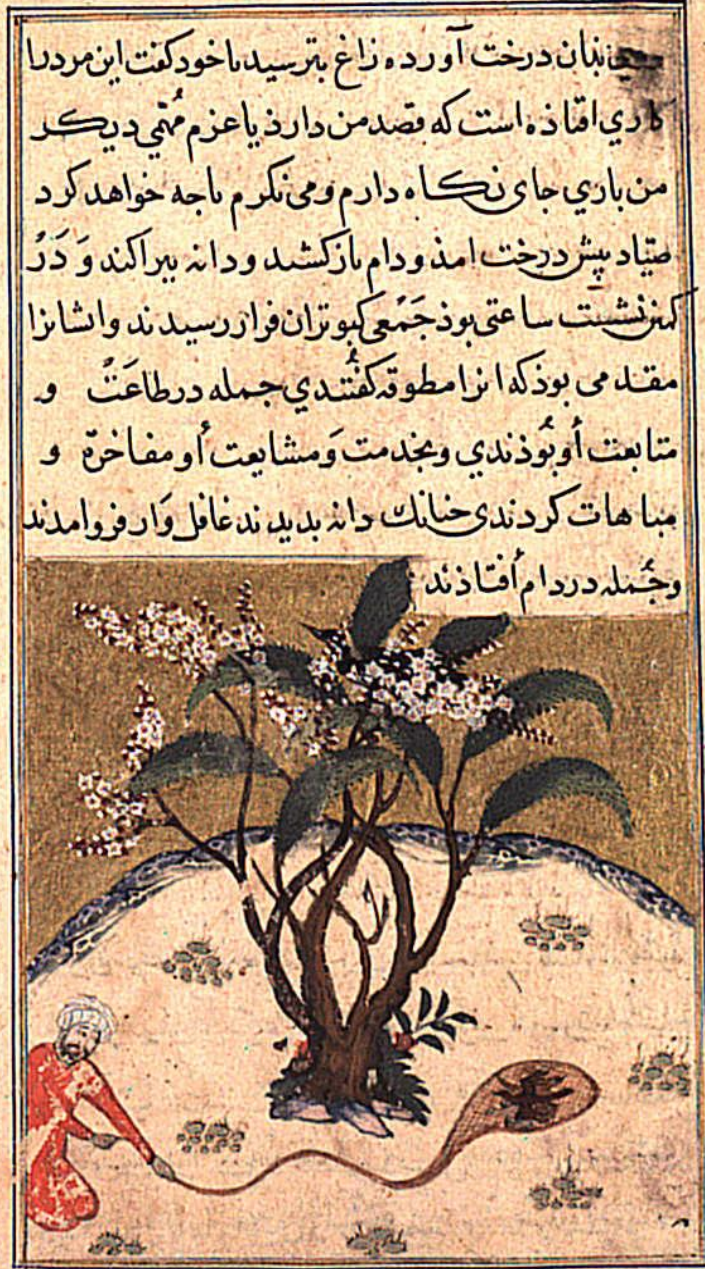 بذان درخت آورد ه زاغ بترسید با خود کفت این مرد را
کاري افتاذه است که قصد من دارذ یا عزم مُهمّي دیکر
من باري جای نکاه دارم و می نکرم تا جه خواهد کرد
صیّاد پیش درخت امذ و دام بازکشید و دانه بپراکند وَ دَرْ
کمین نشست ساعتی بوذ جَمَعی کبوتران فراز رسیدند و ایشانرا
مقدمی بوذ که انرا مطوقه کفُتندي جمله در طاعَتْ و
متابعت أو بُوذندي و بخدمت وَ مشایعت أو مفاخرة و
مباهات کردندی جنانك دانه بدیدند غافل وَار فروامدند
و جُمله در دام أفتاذند